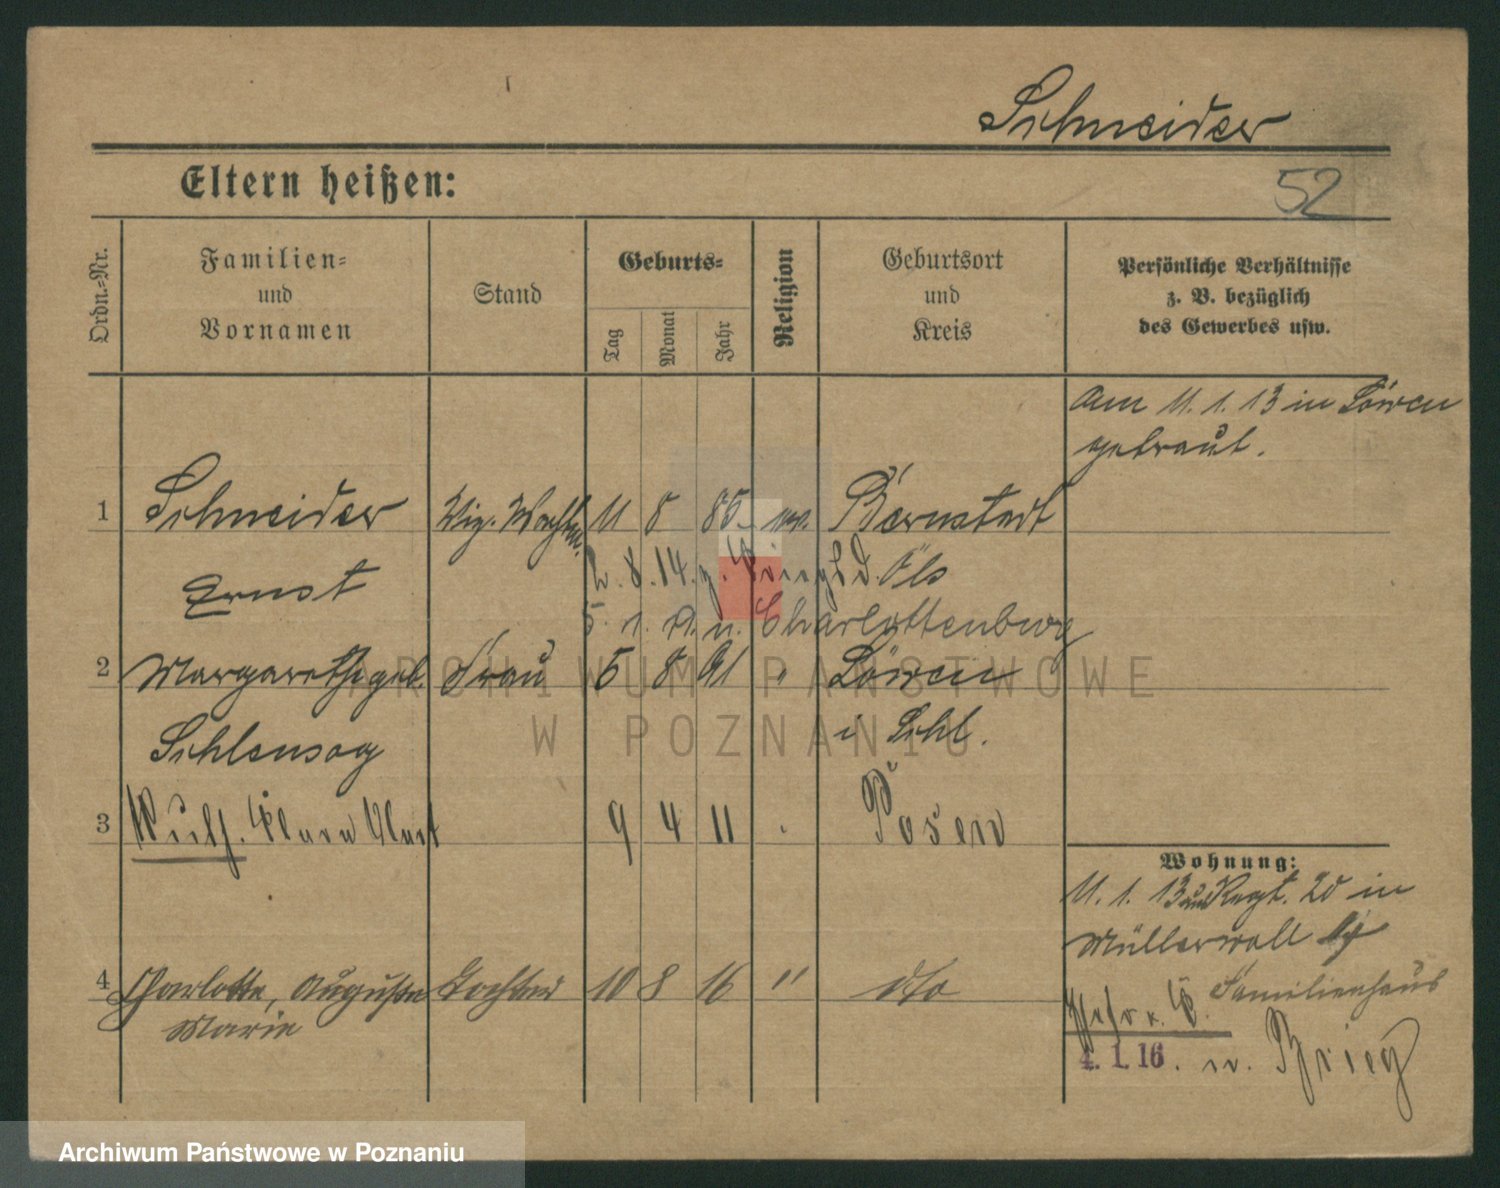 Schneider
Eltern heißen:
52
Ordn.-Nr.
Familien-
und
Vornamen
Stand
Geburts-
Tag
Monat
Jahr
Religion
Geburtsort
und
Kreis
Persönliche Verhältnisse
z. B. bezüglich
des Gewerbes usw.
Am 11. 1. 13 in Löwen
getraut.
1 Schneider 11 8 85 Bernstadt
Ernst 8. 14. Öls
5. 1. n. Charlottenburg
2 Margarethe geb. Frau 5 8 91 " Löwen
Schlensog i Schl.
3 9 4 11 Posen
Wohnung:
11. 1. 13 Regt. 20 in
Müllerwall
4 Charlotte, Auguste Tochter 10 8 16 " dto
Marie
Familienhaus
4. 1. 16. n. Brieg
ARCHIWUM PAŃSTWOWE
W POZNANIU
Archiwum Państwowe w Poznaniu